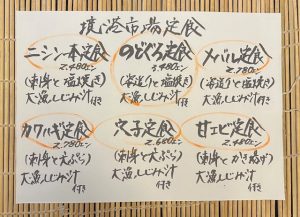 境港市場定食
ニシン一本定食
2.480エン
(刺身と塩焼き)
大漁しじみ汁付き
のどぐろ定食
3.480エン
(煮造りと塩焼き)
大漁しじみ汁付き
メバル定食
2.780エン
(煮造りと塩焼き)
大漁しじみ汁付き
カワハギ定食
2.780エン
(刺身と天ぷら)
大漁しじみ汁付き
穴子定食
2.680エン
(刺身と天ぷら)
大漁しじみ汁付き
甘エビ定食
2.480エン
(刺身とかき揚げ)
大漁しじみ汁付き